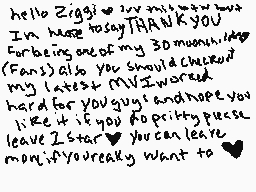 hello Ziggi ♥
Im here to say THANK YOU
For being one of my 30 moonchildren
(Fans) also you should checkout
my latest MV I worked
hard for you guys and hope you
like it if you do pritty please
leave 1 star ♥ you can leave
more if you realy want to ♥